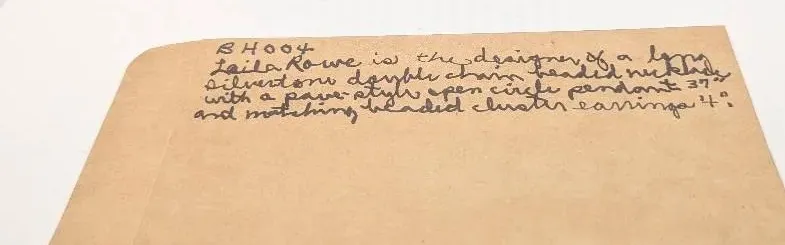 BH004
Laila Rowe is the designer of a long
silvertone double chain beaded necklace
with a pave-style open circle pendant 37"
and matching beaded cluster earrings 4".